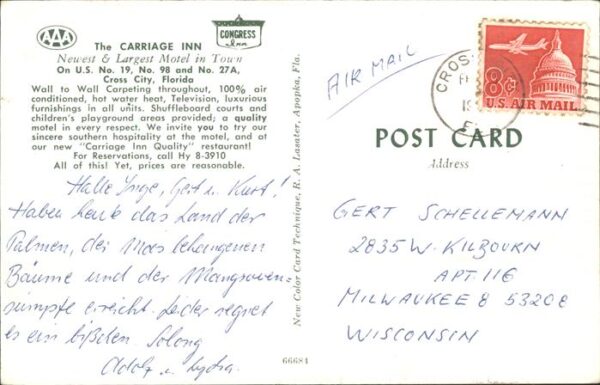 AAA
The CARRIAGE INN
CONGRESS
Inn
Newest & Largest Motel in Town
On U.S. No. 19, No. 98 and No. 27A,
Cross City, Florida
Wall to Wall Carpeting throughout, 100% air
conditioned, hot water heat, Television, luxurious
furnishings in all units. Shuffleboard courts and
children's playground areas provided; a quality
motel in every respect. We invite you to try our
sincere southern hospitality at the motel, and at
our new "Carriage Inn Quality" restaurant!
For Reservations, call Hy 8-3910
All of this! Yet, prices are reasonable.
Hallo Inge, Gert u. Kurt!
Haben heute das Land der
Palmen, der Moos behangenen
Bäume und der Mangroven-
sümpfe erreicht. Leider regnet
es ein bißchen. Solong
Adolf u. Lydia.
66684
New Color Card Technique, R. A. Lasater, Apopka, Fla.
AIR MAIL
CROSS
FE
19
FL
8¢
U.S. AIR MAIL
POST CARD
Address
GERT SCHELLEMANN
2835 W. KILBOURN
APT 116
MILWAUKEE 8 53208
WISCONSIN